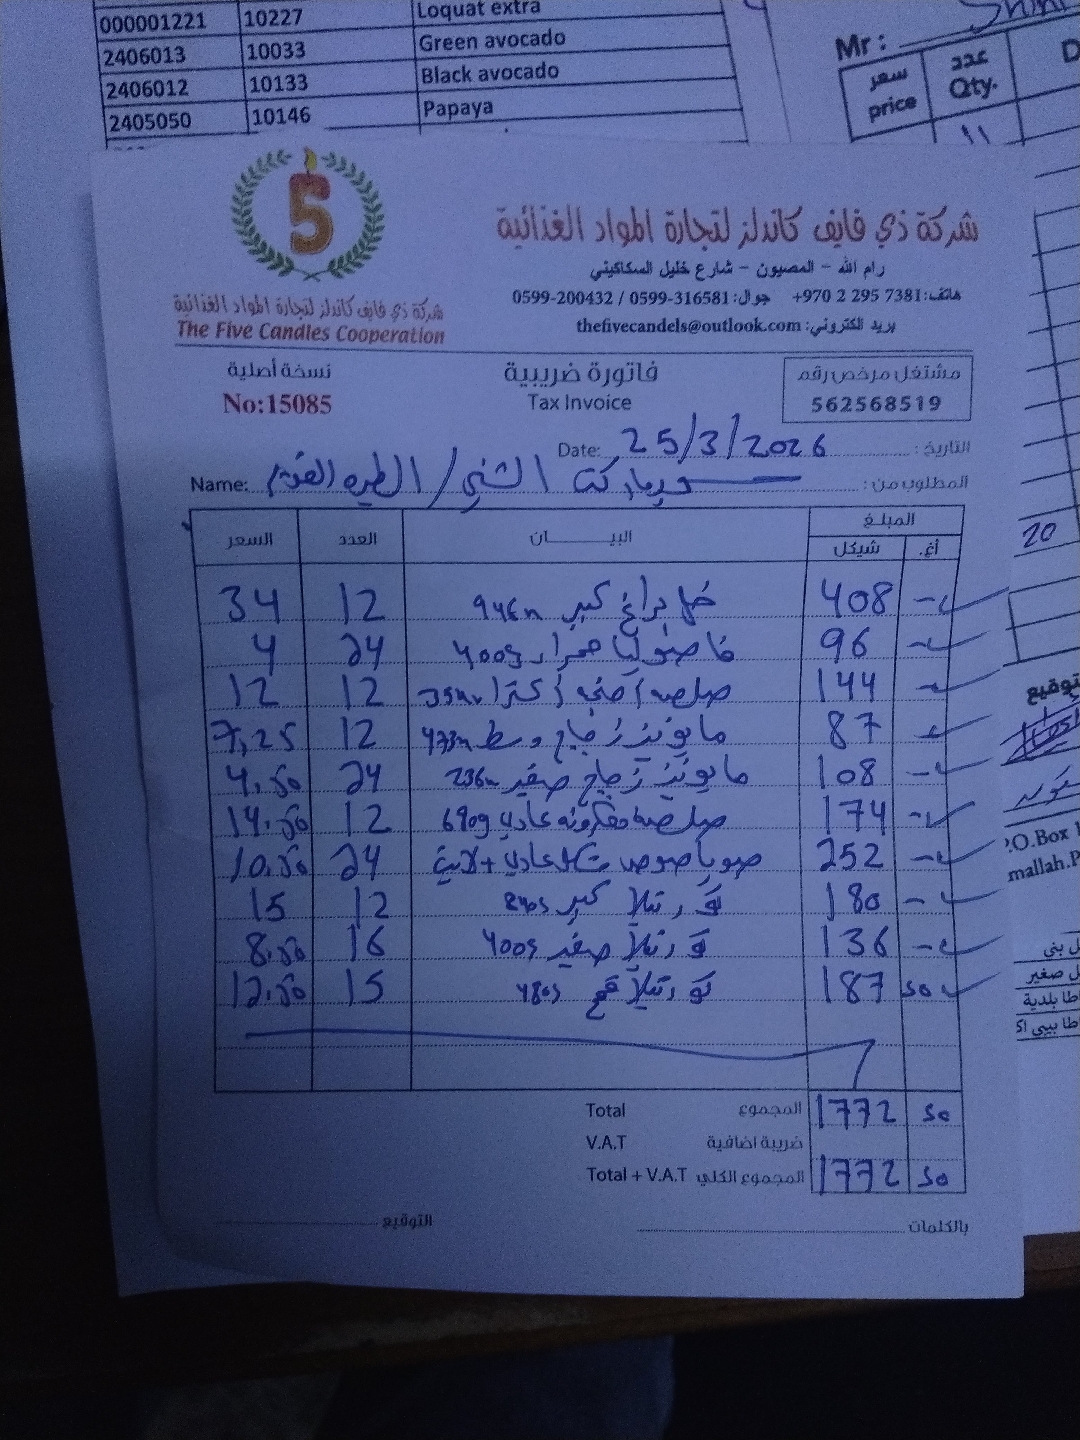 000001221 10227 Loquat extra
2406013 10033 Green avocado
2406012 10133 Black avocado
2405050 10146 Papaya
Mr:
سعر عدد
price Qty. D
11
5
شركة ذي فايف كاندلز لتجارة المواد الغذائية
رام الله - المصيون - شارع خليل السكاكيني
هاتف: +970 2 295 7381 جوال: 0599-316581 / 0599-200432
بريد الكتروني: thefivecandels@outlook.com
شركة ذي فايف كاندلز لتجارة المواد الغذائية
The Five Candles Cooperation
نسخة أصلية فاتورة ضريبية مشتغل مرخص رقم
No:15085 Tax Invoice 562568519
التاريخ: 25/3/2026 Date:
المطلوب من: الشني / الطيره Name:
المبلغ
أغ. شيكل البيــــــان العدد السعر
- 408 كبير 946m 12 34
- 96 فاصوليا حمراء 400g 24 4
- 144 اكسترا 12 12
- 87 مايونيز زجاج وسط 473m 12 7,25
- 108 مايونيز زجاج صغير 236m 24 4.50
- 174 صلصه معكرونه عادي 690g 12 14.50
- 252 24 10.50
- 180 كبير 840g 12 15
- 136 صغير 400g 16 8.50
50 187 480g 15 12.50
50 1772 المجموع Total
ضريبة اضافية V.A.T
50 1772 المجموع الكلي Total + V.A.T
بالكلمات التوقيع
20
توقيع
P.O.Box
mallah.P
ل بني
ل صغير
طا بلدية
طا بيبي